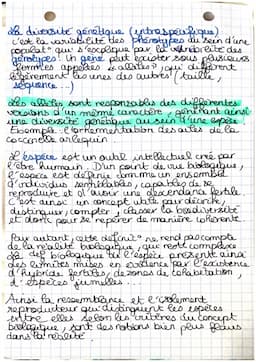 La diversité génétique (intraspécifique)
c'est la variabilité des phénotypes au sein d'une
populat° qui s'explique par la variabilité des
génotypes. Un gène peut exister sous plusieurs
formes appelées "allèles" qui diffèrent
légèrement les unes des autres (taille,
séquence...)
Les allèles sont responsables des différentes
versions d'un même caractère, générant ainsi
une diversité génétique au sein d'une espèce.
Exemple : l'ornementation des ailes de la
coccinelle arlequin.
L'espèce est un outil intellectuel créé par
l'être humain. D'un point de vue biologique,
l'espèce est définie comme un ensemble
d'individus semblables, capables de se
reproduire et d'avoir une descendance fertile.
C'est ainsi un concept utile pour décrire,
distinguer, compter, classer la biodiversité
et donc pour se repérer de manière cohérente.
Pour autant, cette définit° ne rend pas compte
de la réalité biologique, qui reste complexe.
La def biologique de l'espèce présente ainsi
des limites mises en évidence par l'existence
d'hybrides fertiles, de zones de cohabitation,
d'espèces jumelles...
Ainsi la ressemblance et l'isolement
reproducteur qui distinguent les espèces
entre elles selon les critères du concept
biologique, sont des notions bien plus floues
dans la réalité.